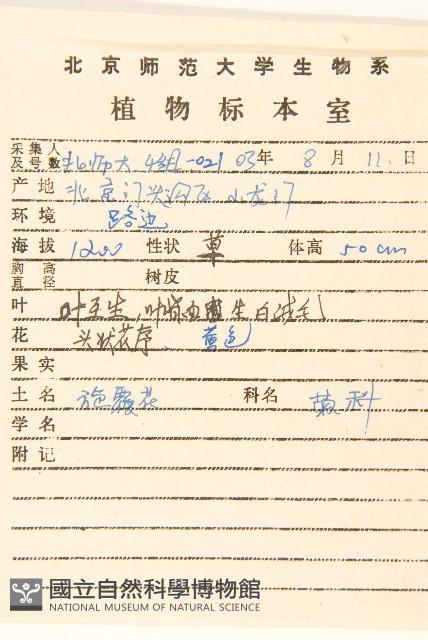 北京师范大学生物系
植物标本室
采集人及号数 北师大 4组-021 03年 8月 11日
产地 北京门头沟区 小龙门
环境 路边
海拔 1200 性状 草 体高 50 cm
胸高直径 树皮
叶 叶互生,叶背面密生白绒毛
花 头状花序、蓝色
果实
土名 旋覆花 科名 菊科
学名
附记
國立自然科學博物館
NATIONAL MUSEUM OF NATURAL SCIENCE